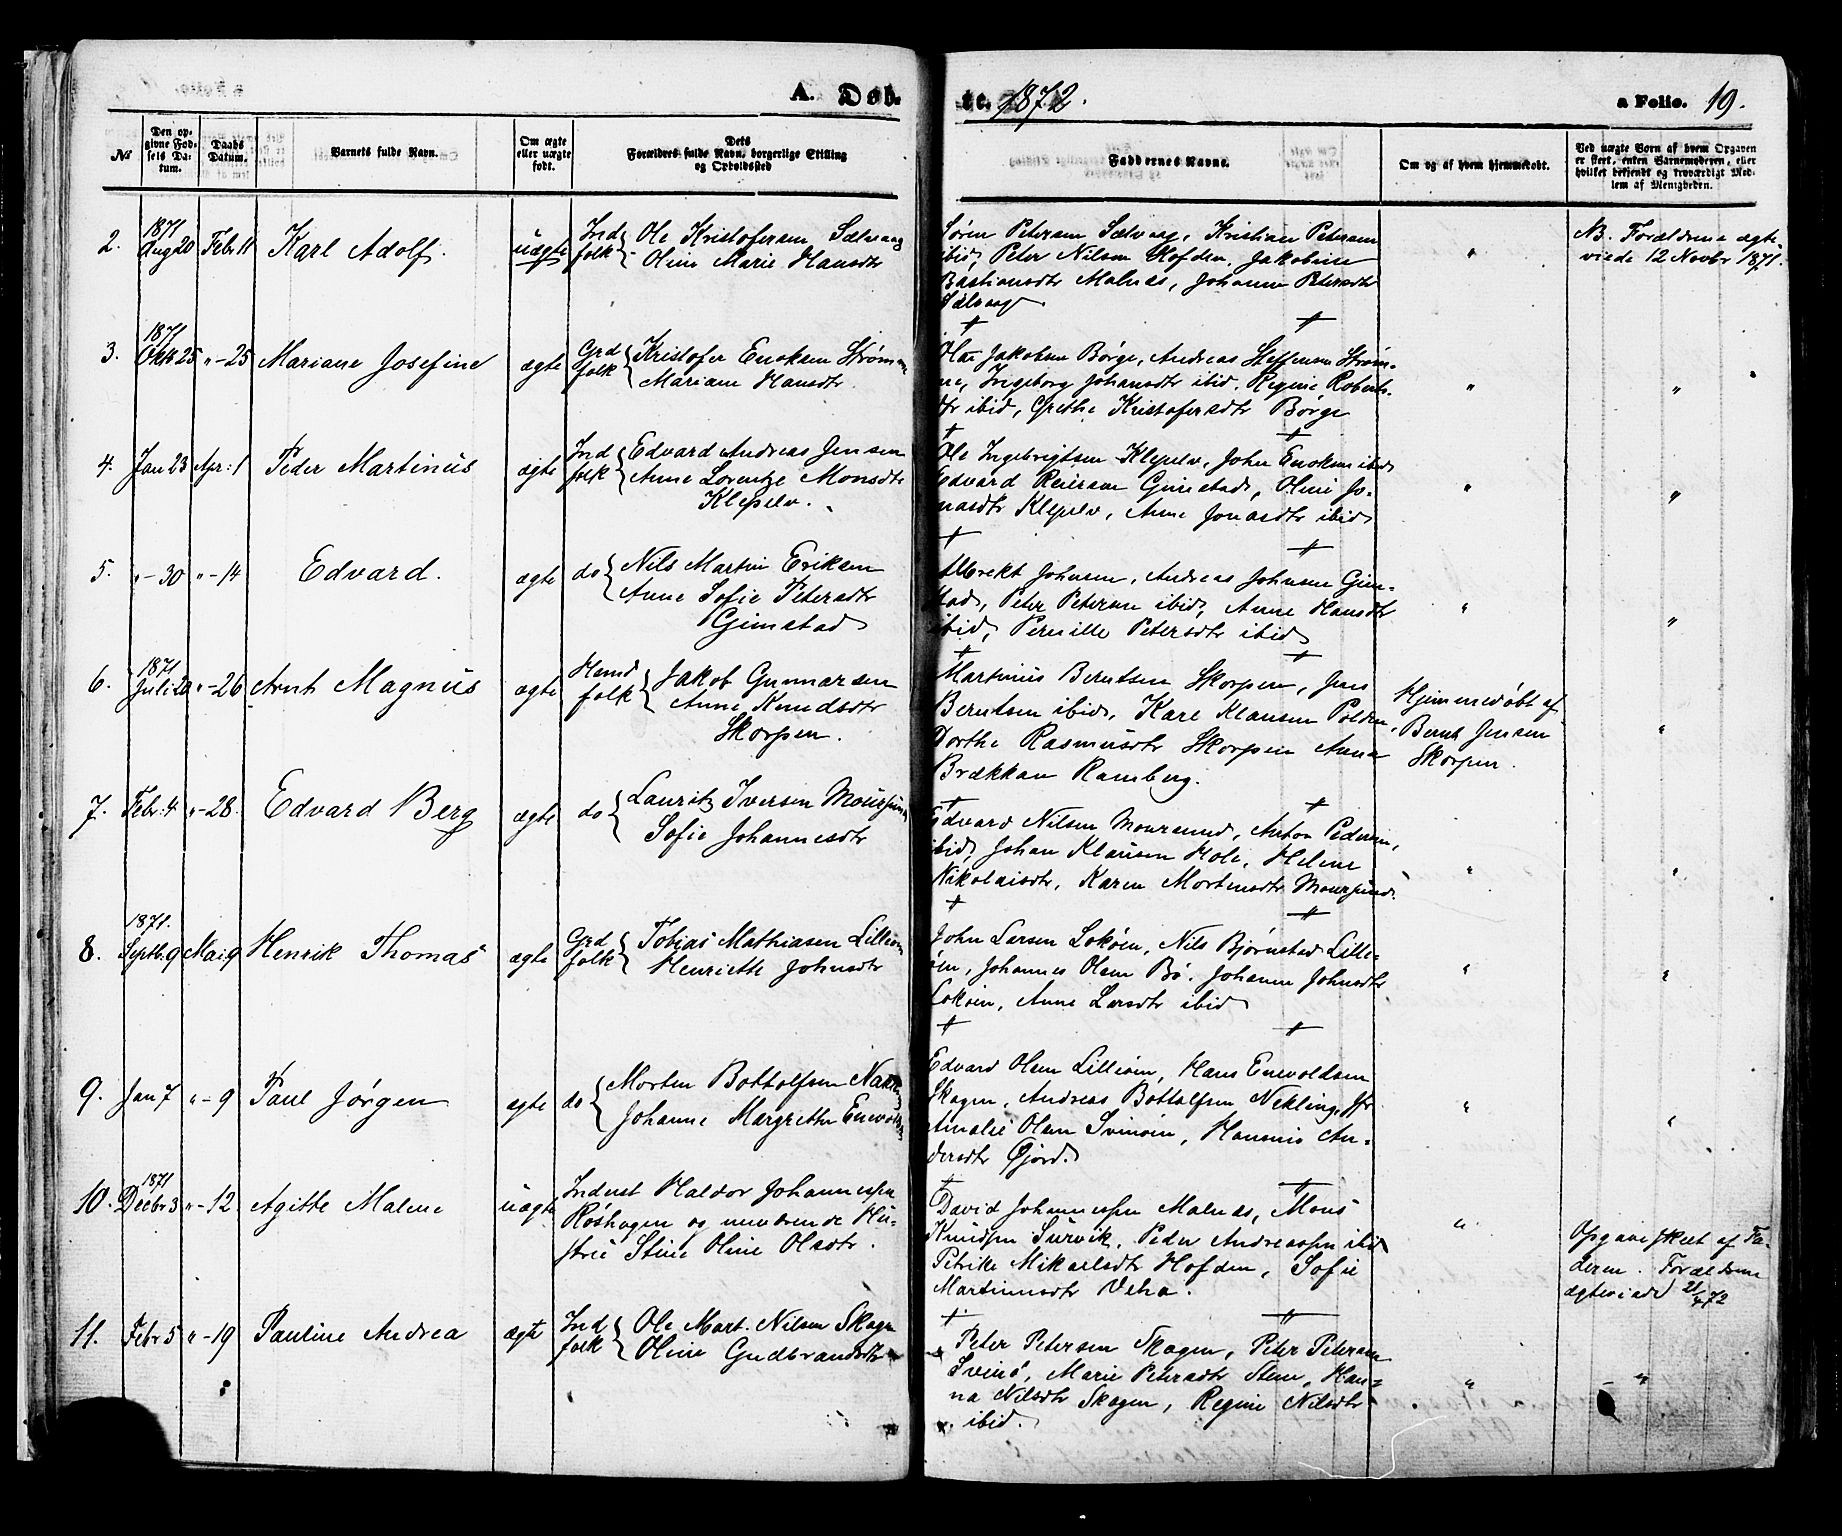 A. Døb-
te. 1872.
a Folio. 19.
№
Den op-
givne Fød-
sels Da-
tum.
Daabs
Datum.
Barnets fulde Navn.
Om ægte
eller uægte
født.
Dets
Forældres fulde Navn, borgerlige Stilling
og Opholdssted
Faddernes Navne.
Om og af hvem hjemmedøbt.
Ved uægte Børn af hvem Opgaven
er skeet, enten Barnemoderen, eller
hvilket bekjendt og troværdigt Med-
lem af Menigheden.
2. 1871 Aug 20 Febr 11 Karl Adolf. uægte Ind folk
Ole Kristofersen Sælvaag
Oline Marie Hansdtr
Søren Petersen Sælvaag, Kristian Petersen
ibid, Peter Nilsen Hofden, Jakobine
Bastiansdtr Malnes, Johanne Petersdtr
Sælvaag
"
NB. Forældrene ægte-
viede 12 Novbr 1871.
3. 1871 Oktr 25 " - 25 Mariane Josefine ægte Grd folk
Kristofer Enoksen Strømme
Mariane Hansdtr
Olai Jakobsen Børge, Andreas Steffensen Strøm-
me, Ingeborg Johansdtr ibid, Regine Roberts-
dtr ibid, Grethe Kristofersdtr Børge
" "
4. Jan 23 Apr: 1 Peder Martinus ægte Ind folk
Edvard Andreas Jensen
Anne Lorentze Monsdtr
Klepelv.
Ole Ingebrigtsen Klepelv, John Enoksen ibid
Edvard Reiersen Gimstad, Oline Jo-
nasdtr Klepelv, Anne Jonasdtr ibid
" "
5. " - 30 " - 14 Edvard. ægte do
Nils Martin Eriksen
Anne Sofie Petersdtr
Gimstad
Albrekt Johnsen, Andreas Johnsen Gim-
stad, Peter Petersen ibid, Anne Hansdtr
ibid, Pernille Petersdtr ibid
" "
6. 1871 Juli 20 " - 26 Arnt Magnus ægte Hsmd folk
Jakob Gunnarsen
Anne Knudsdtr
Skorpen.
Martinus Berntsen Skorpen, Jens
Berntsen ibid, Karl Klausen Polden,
Dorthe Rasmusdtr Skorpen Anna
Brækkan Ramberg.
Hjemmedøbt af
Bernt Jensen
Skorpen.
"
7. Febr. 4 " - 28. Edvard Berg ægte do
Lauritz Iversen Moursund
Sofie Johannesdtr
Edvard Nilsen Moursund, Anton Pedersen,
ibid, Johan Klausen Hole, Helene
Nikolaisdtr, Karen Mortensdtr Moursund.
" "
8. 1871. Septbr. 9 Mai 9 Henrik Thomas ægte Grd folk
Tobias Mathiasen Lilleøen
Henriette Johnsdtr
John Larsen Lokøen, Nils Bjørnstad Lille-
øen, Johannes Olsen Bø. Johanne Johnsdtr
Lokøen, Anne Larsdtr ibid
" "
9. Jan 7 " - 9 Paul Jørgen ægte do
Morten Bottolfsen
Johanne Margrethe
Edvard Olsen Lilleøen, Hans Enevoldsen
Skagen, Andreas Bottolfsen Nekling, Jfr
Amalie Olsen Svinøen, Hansine An-
dersdtr Øjord.
" "
10. 1871 Decbr 3 " - 12 Agitte Malene uægte
Inderst Haldor Johannessen
Røshagen og nuværende Hu-
stru Stine Oline Olsdtr.
David Johannessen Malnes, Mons
Knudsen Survik, Peder Andreassen ibid
Petrike Mikaelsdtr Hofden, Sofie
Martinusdtr Veha.
"
Opgave skeet af Fa-
deren. Forældrene
ægteviede 21/4 72
11. Febr 5 " - 19 Pauline Andrea ægte Ind folk
Ole Mart. Nilsen Skagen
Oline Gudbrandsdtr
Peter Petersen Skagen, Peter Petersen
Svinø, Marie Petersdtr Stene, Han-
na Nilsdtr Skagen, Regine Nilsdtr
ibid.
" "